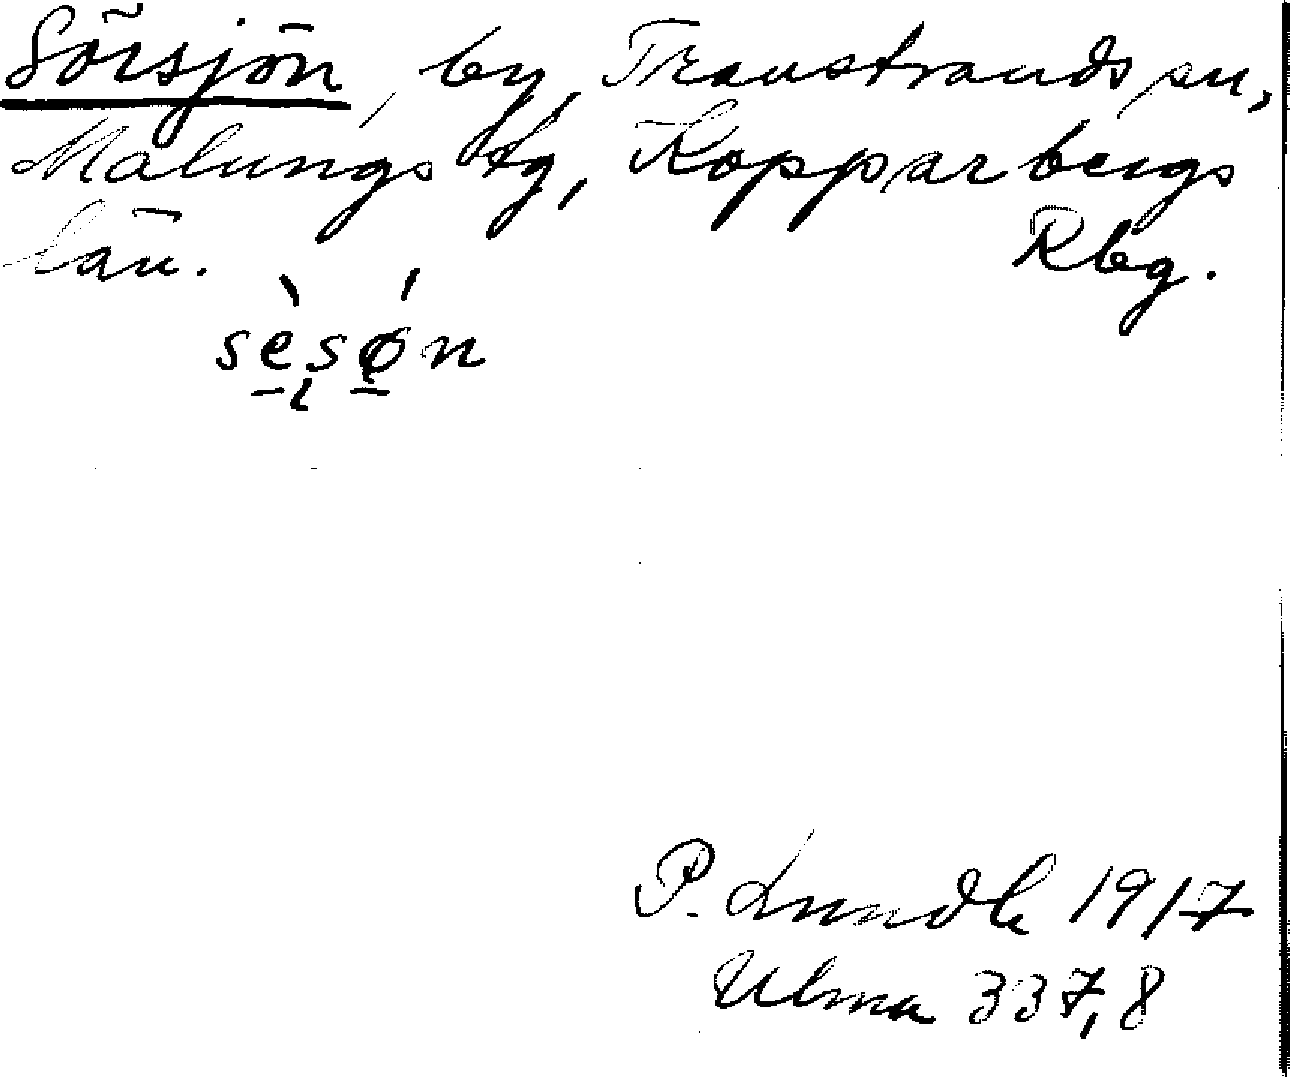 Sörsjön, by, Transtrands sn,
Malungs tg, Kopparbergs
län.
Rbg.
sèsǿn
P. Lindh 1917
Ulma 337,8